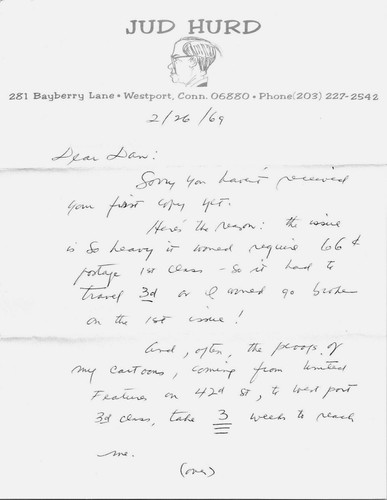 JUD HURD
281 Bayberry Lane • Westport, Conn. 06880 • Phone (203) 227-2542
2/26/69
Dear Dan:
Sorry you haven't received
your first copy yet.
Here's the reason: the issue
is so heavy it would require 66¢
postage 1st class – so it had to
travel 3rd or I would go broke
on the 1st issue!
And, often, the proofs of
my cartoons, coming from United
Features on 42d St, to Westport
3rd class, take 3 weeks to reach
me.
(over)